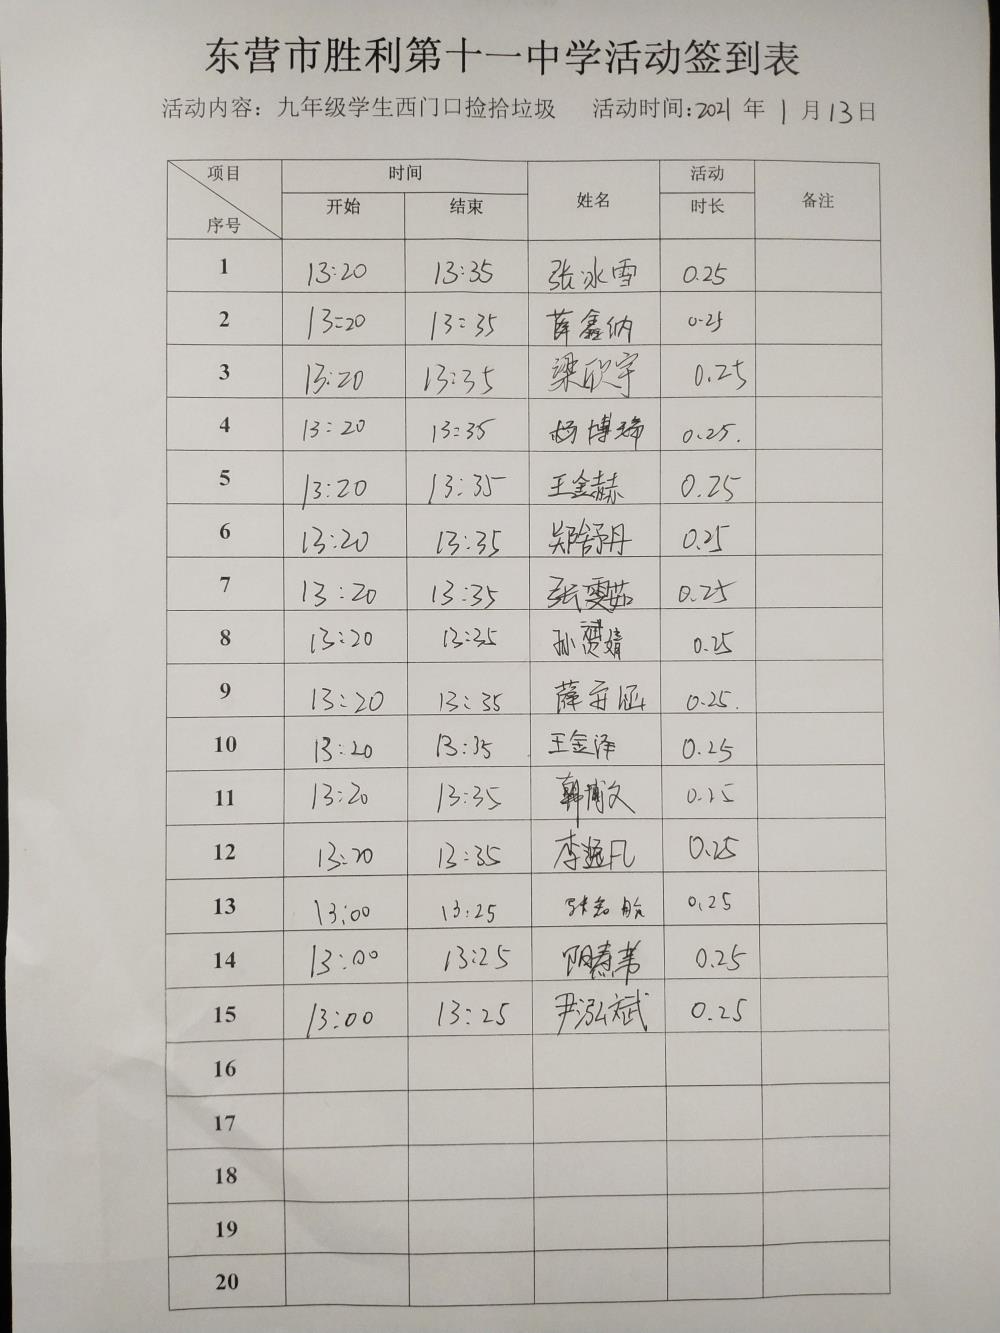 东营市胜利第十一中学活动签到表
活动内容：九年级学生西门口捡拾垃圾 活动时间:2021 年 1 月 13 日
项目 时间 姓名 活动 备注
序号 开始 结束 时长
1 13:20 13:35 张冰雪 0.25
2 13:20 13:35 薛鑫纳 0.25
3 13:20 13:35 梁欣宇 0.25
4 13:20 13:35 杨博瑞 0.25.
5 13:20 13:35 王金赫 0.25
6 13:20 13:35 郑舒丹 0.25
7 13:20 13:35 张雯茹 0.25
8 13:20 13:35 孙赟婧 0.25
9 13:20 13:35 薛 涵 0.25.
10 13:20 13:35 王金泽 0.25
11 13:20 13:35 韩博文 0.25
12 13:20 13:35 李 凡 0.25
13 13:00 13:25 0.25
14 13:00 13:25 0.25
15 13:00 13:25 尹泓斌 0.25
16
17
18
19
20